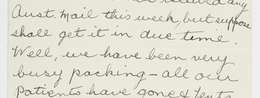 any
Aust. mail this week, but suppose
shall get it in due time.
Well, we have been very
busy packing – all our
patients have gone & tents